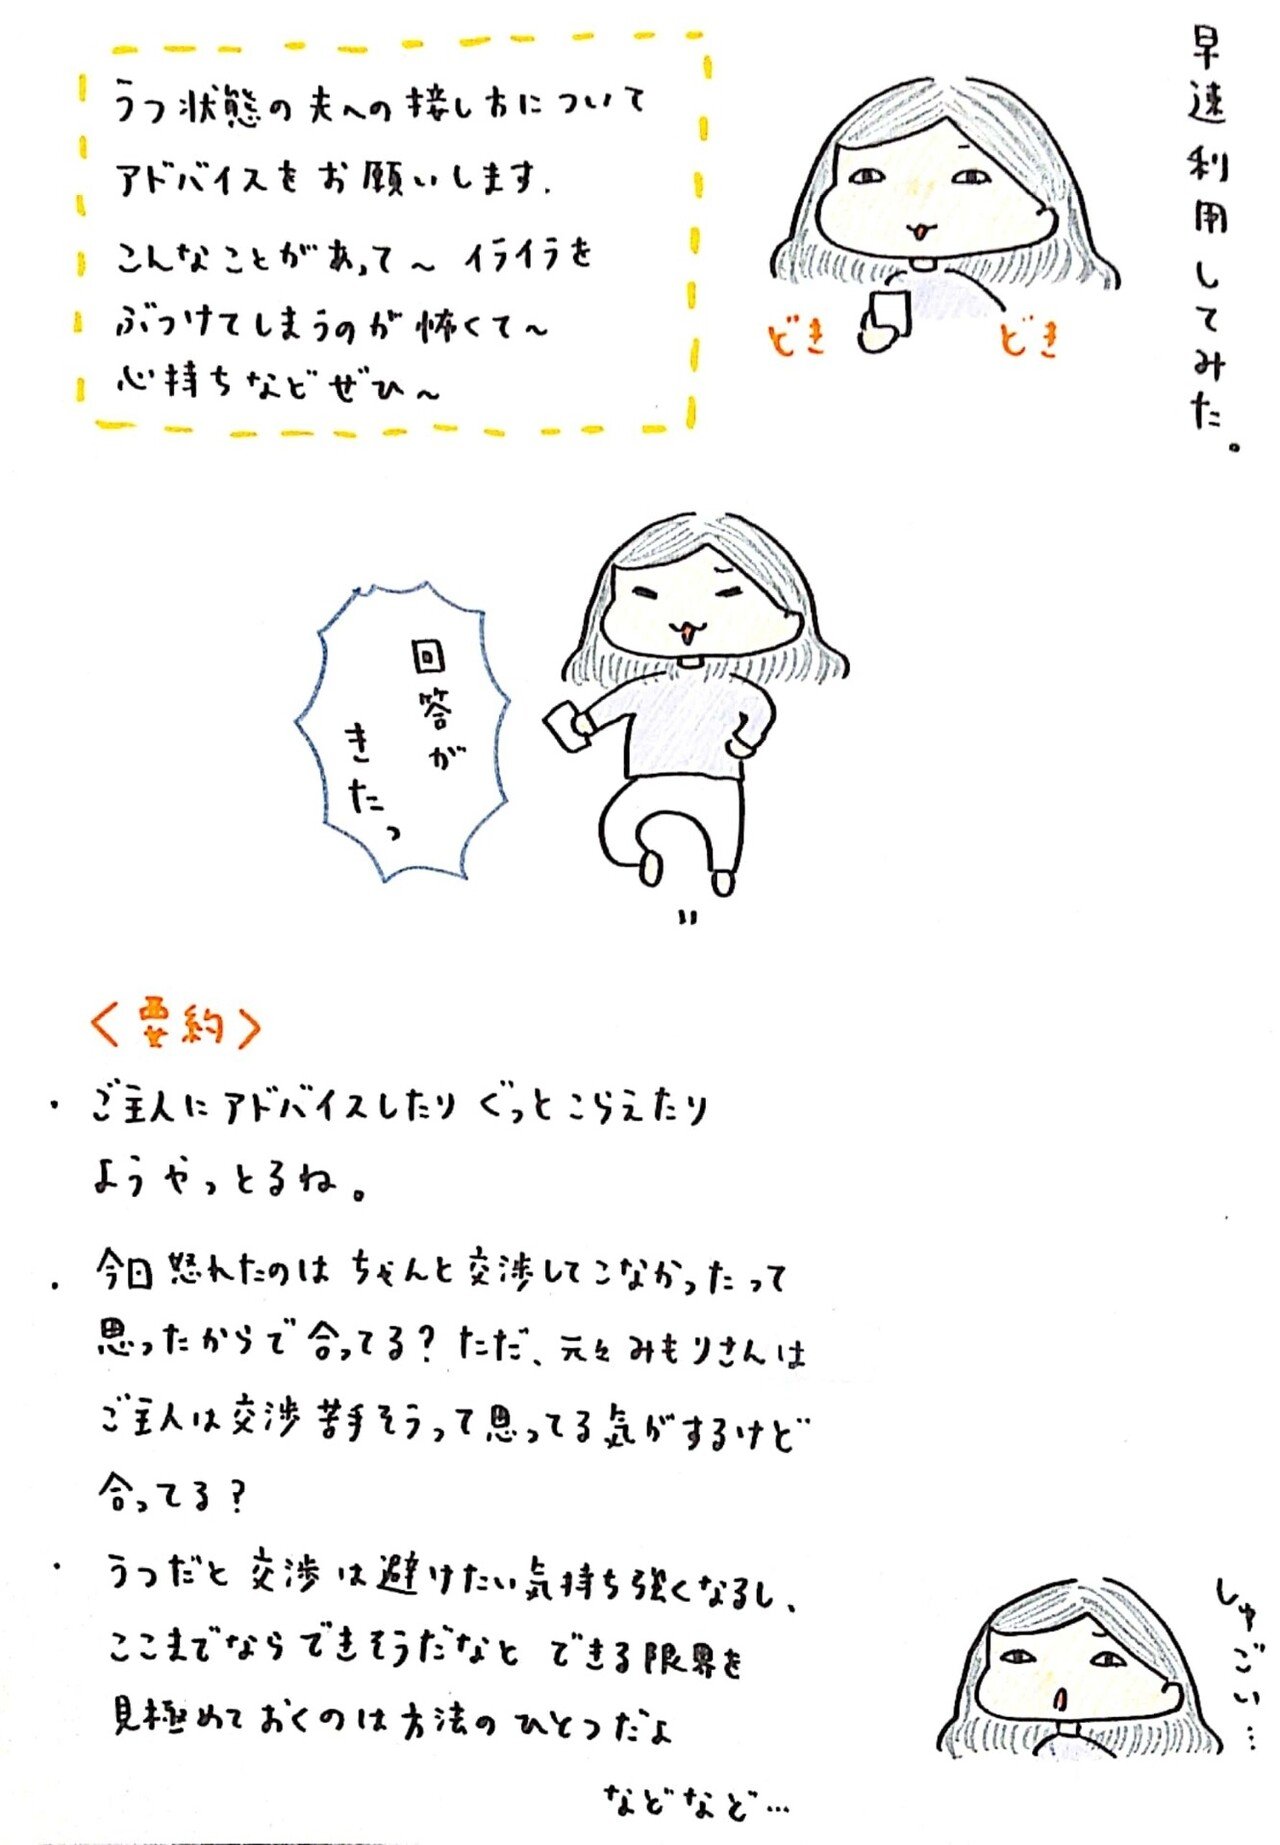 早速利用してみた。
うつ状態の夫への接し方について
アドバイスをお願いします.
こんなことがあって～ イライラを
ぶつけてしまうのが怖くて～
心持ちなどぜひ～
どき
どき
回答が
きたっ
＜要約＞
・ご主人にアドバイスしたり ぐっとこらえたり
ようやっとるね。
・今日怒れたのは ちゃんと交渉してこなかったって
思ったからで合ってる？ただ、元々みもりさんは
ご主人は交渉苦手そうって思ってる気がするけど
合ってる？
・うつだと交渉は避けたい気持ち強くなるし、
ここまでならできそうだなと できる限界を
見極めておくのは方法のひとつだよ
しゅごい…
などなど…